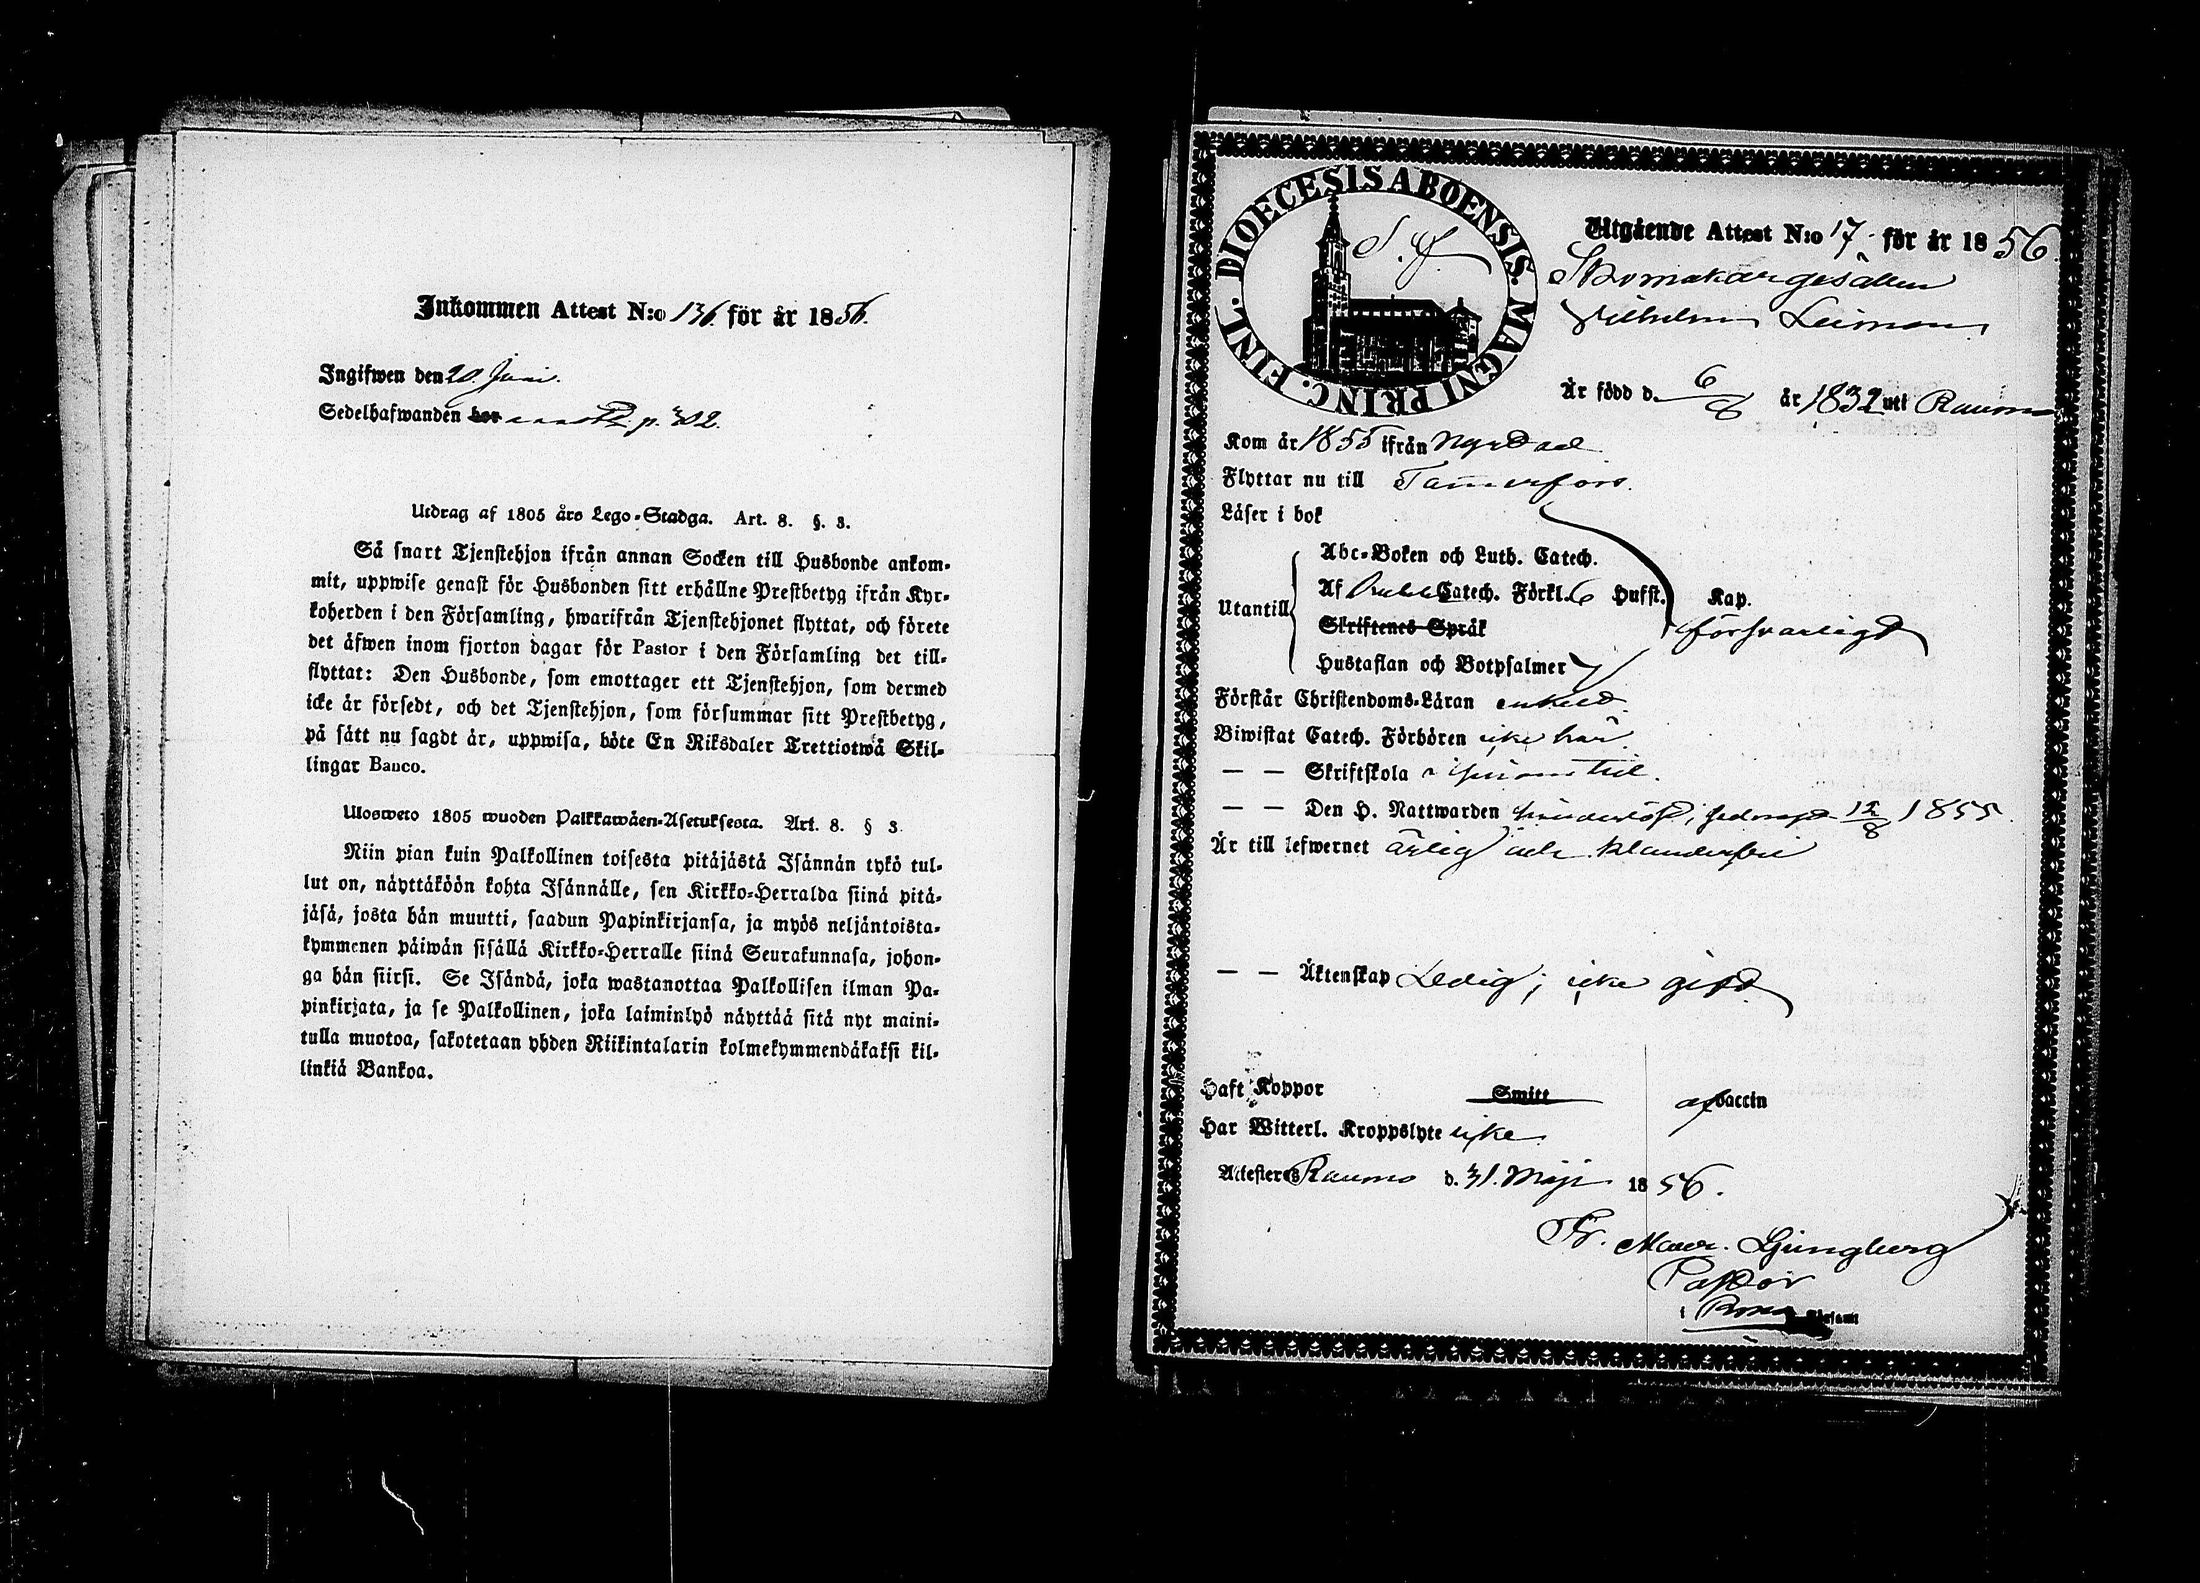 Inkommen Attest N:o 136. för år 1856.
Ingifwen den 20. Juni.
Sedelhafwanden bor p. 302.
Utdrag af 1805 års Lego-Stadga. Art. 8. §. 3.
Så snart Tjenstehjon ifrån annan Socken till Husbonde ankom-
mit, uppwise genast för Husbonden sitt erhållne Prestbetyg ifrån Kyr-
koherden i den Församling, hwarifrån Tjenstehjonet flyttat, och förete
det äfwen inom fjorton dagar för Pastor i den Församling det till-
flyttat: Den Husbonde, som emottager ett Tjenstehjon, som dermed
icke är försedt, och det Tjenstehjon, som försummar sitt Prestbetyg,
på sätt nu sagdt är, uppwisa, böte En Riksdaler Trettiotwå Skil-
lingar Banco.
Ulosweto 1805 wuoden Palkkawäen-Asetuksesta. Art. 8. § 3.
Niin pian kuin Palkollinen toisesta pitäjästä Isännän tykö tul-
lut on, näyttäköön kohta Isännälle, sen Kirkko-Herralda siinä pitä-
jäsä, josta hän muutti, saadun Papinkirjansa, ja myös neljäntoista-
kymmenen päiwän sisällä Kirkko-Herralle siinä Seurakunnasa, johon-
ga hän siirsi. Se Isändä, joka wastanottaa Palkollisen ilman Pa-
pinkirjata, ja se Palkollinen, joka laiminlyö näyttää sitä nyt maini-
tulla muotoa, sakotetaan yhden Riikintalarin kolmekymmendäkaksi kil-
linkiä Bankoa.
DIOECESIS ABOENSIS. MAGNI PRINC. FINL.
Utgående Attest N:o 17. för år 1856.
Skomakargesällen
Vilhelm Leiman
Är född d. 6/6 år 1832 uti Raumo
Kom år 1855 ifrån Nystad
Flyttar nu till Tammerfors.
Läser i bok
Abc-Boken och Luth. Catech.
Utantill Af Catech. Förkl. 6 Hufst. Kap.
Skriftenes Språk försvarligt
Hustaflan och Botpsalmer
Förstår Christendoms-Läran enkelt.
Biwistat Catech. Förhören icke här
— — Skriftskola
— — Den H. Nattwarden hinderlöst, sednast 12/8 1855.
Är till lefwernet ärlig och klanderfri
— — Äktenskap Ledig; icke gift.
Haft Koppor Smitt af vaccin
Har Witterl. Kroppslyte icke
Attesteras Raumo d. 31. Maji 1856.
Fr. Maur. Ljungberg
Pastor
i